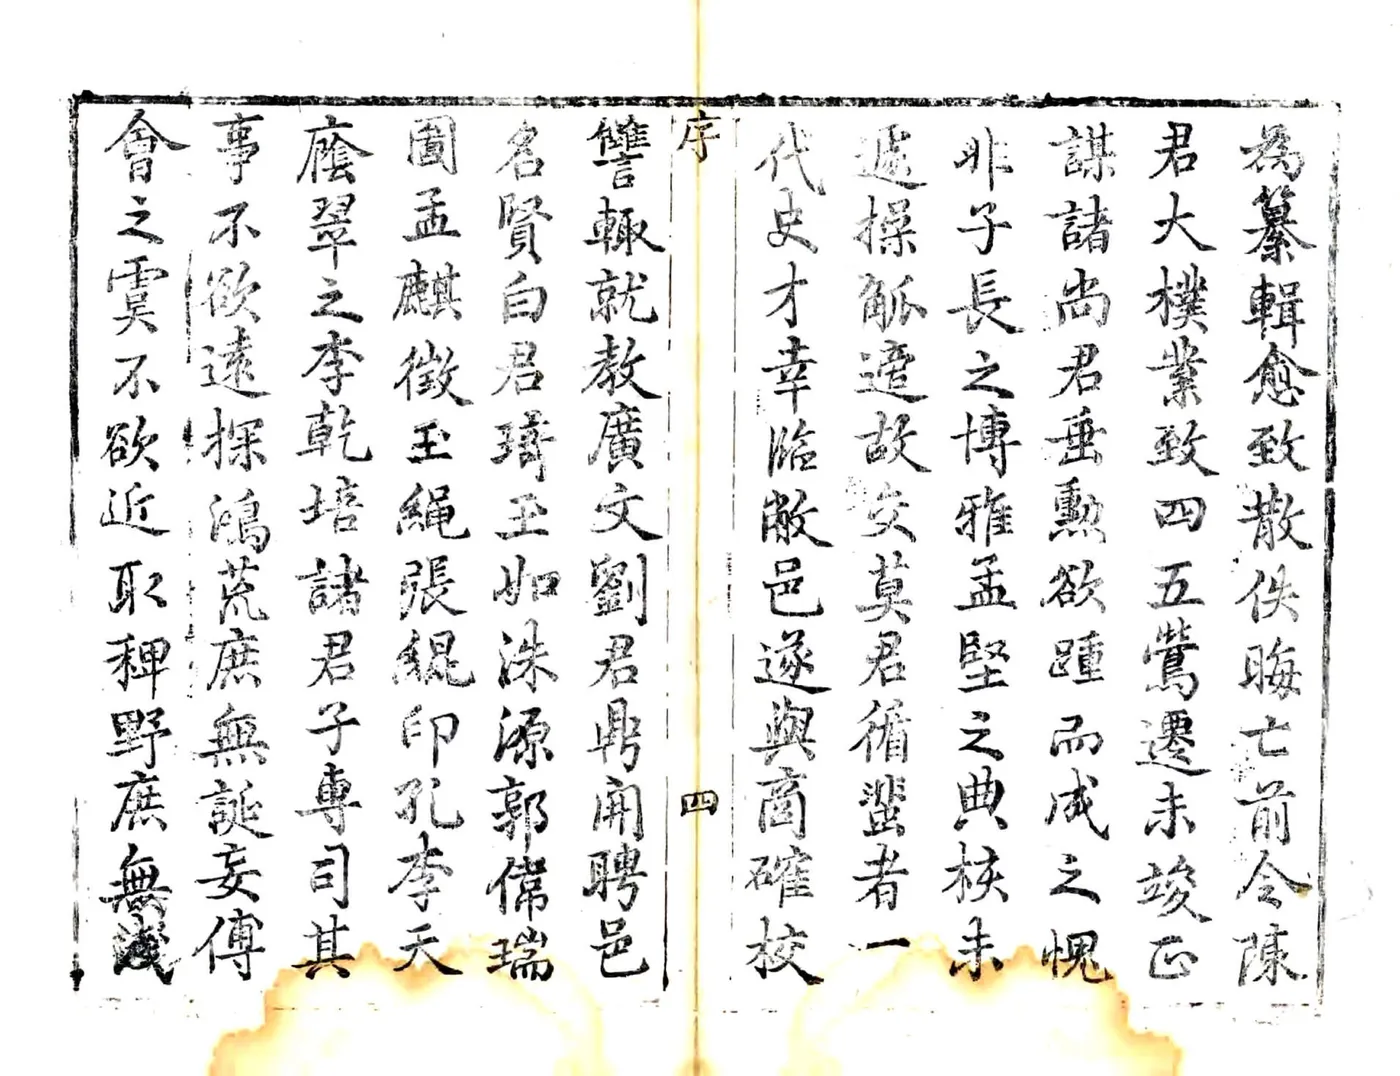 為纂輯愈致散佚晦亡前令陳
君大樸業致四五鶯遷未竣正
謀諸尚君垂勲欲踵而成之愧
非子長之博雅孟堅之典核未
遽操觚適故交莫君循蜚者一
代史才幸臨敝邑遂與商確校
序
四
讐輙就教廣文劉君鼎開聘邑
名賢白君琦玉如洙源郭偉瑞
圃孟麒徵玉繩張緄印孔李天
廕翠之李乾培諸君子專司其
事不欲遠探鴻荒庶無誕妄傅
會之虞不欲近取稗野庶無淺